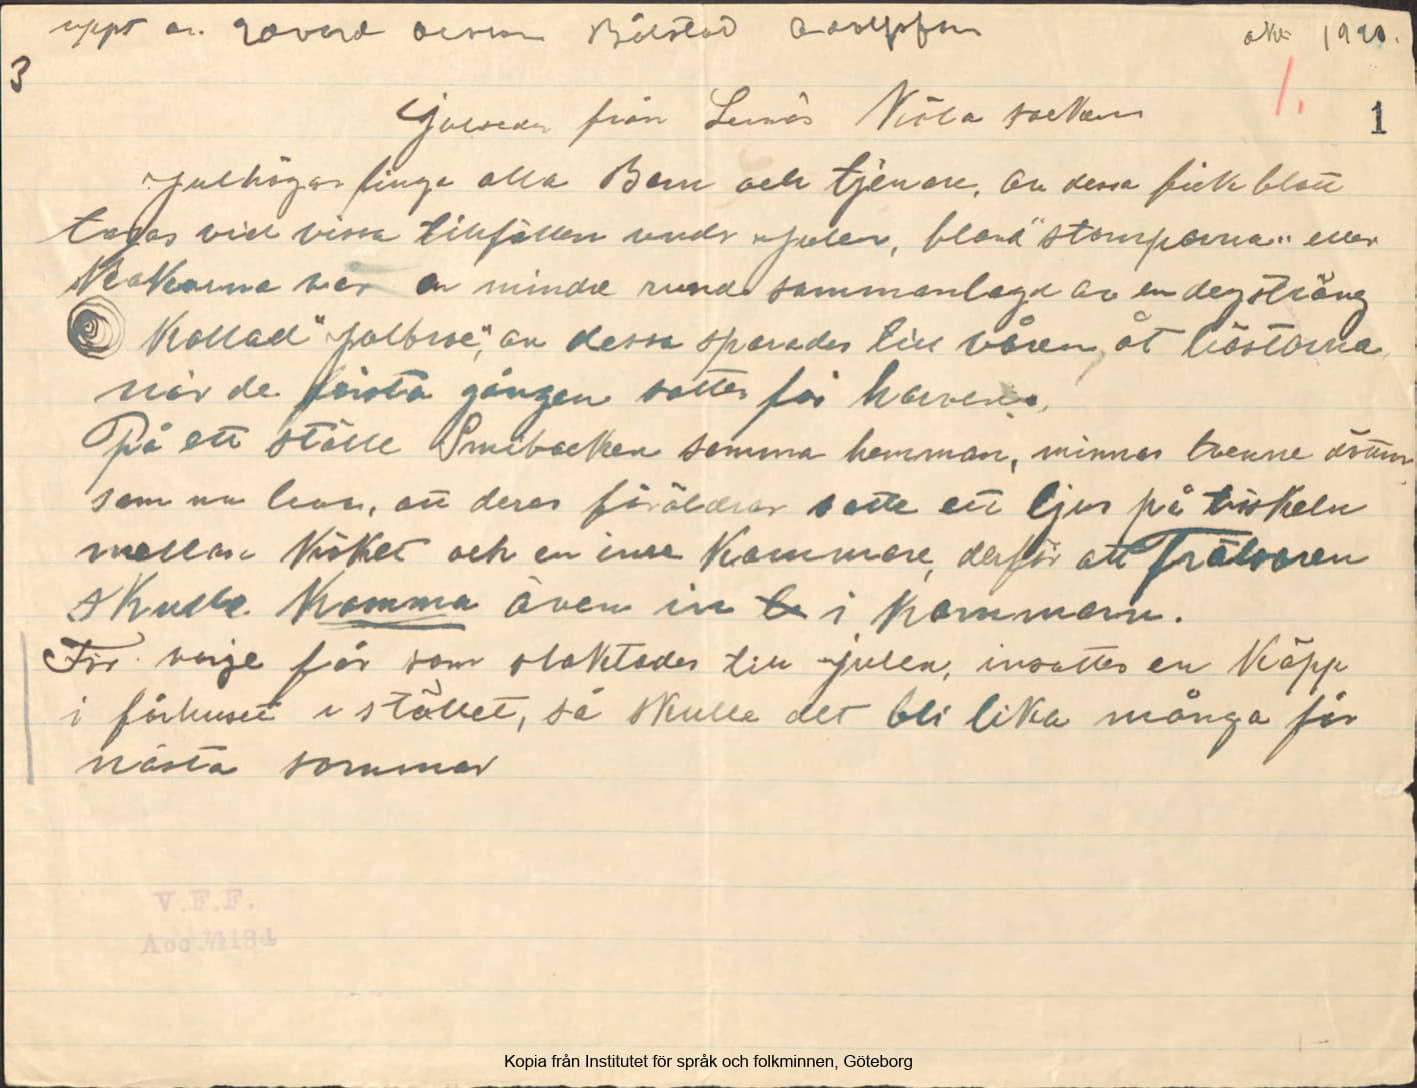 uppt av Edvard Olsson Bålstad Adolfsfors okt 1920.
3
1.
1
Julseder från Lennäs Köla socken
Julhögar finge alla Barn och tjenare, av dessa fick blott
tagas vid vissa tillfällen under Julen, bland "stomparna" eller
Kakorna var en mindre runda sammanlagd av en degsträng
Kallad "julbroe", av dessa sparades till våren åt hästarna
når de första gången sattes för harven.
På ett ställe Smibacken samma hemman, minnas tvenne
som nu leva, att deras föräldrar satte ett ljus på tröskeln
mellan Köket och en inre Kammare, derför att Frälsaren
skulle Komma även in i Kammarn.
För varje får som slaktades till julen, insattes en Käpp
i fårhuset i stället, så skulle det bli lika många får
nästa sommar
V.F.F.
Acc. 184
Kopia från Institutet för språk och folkminnen, Göteborg